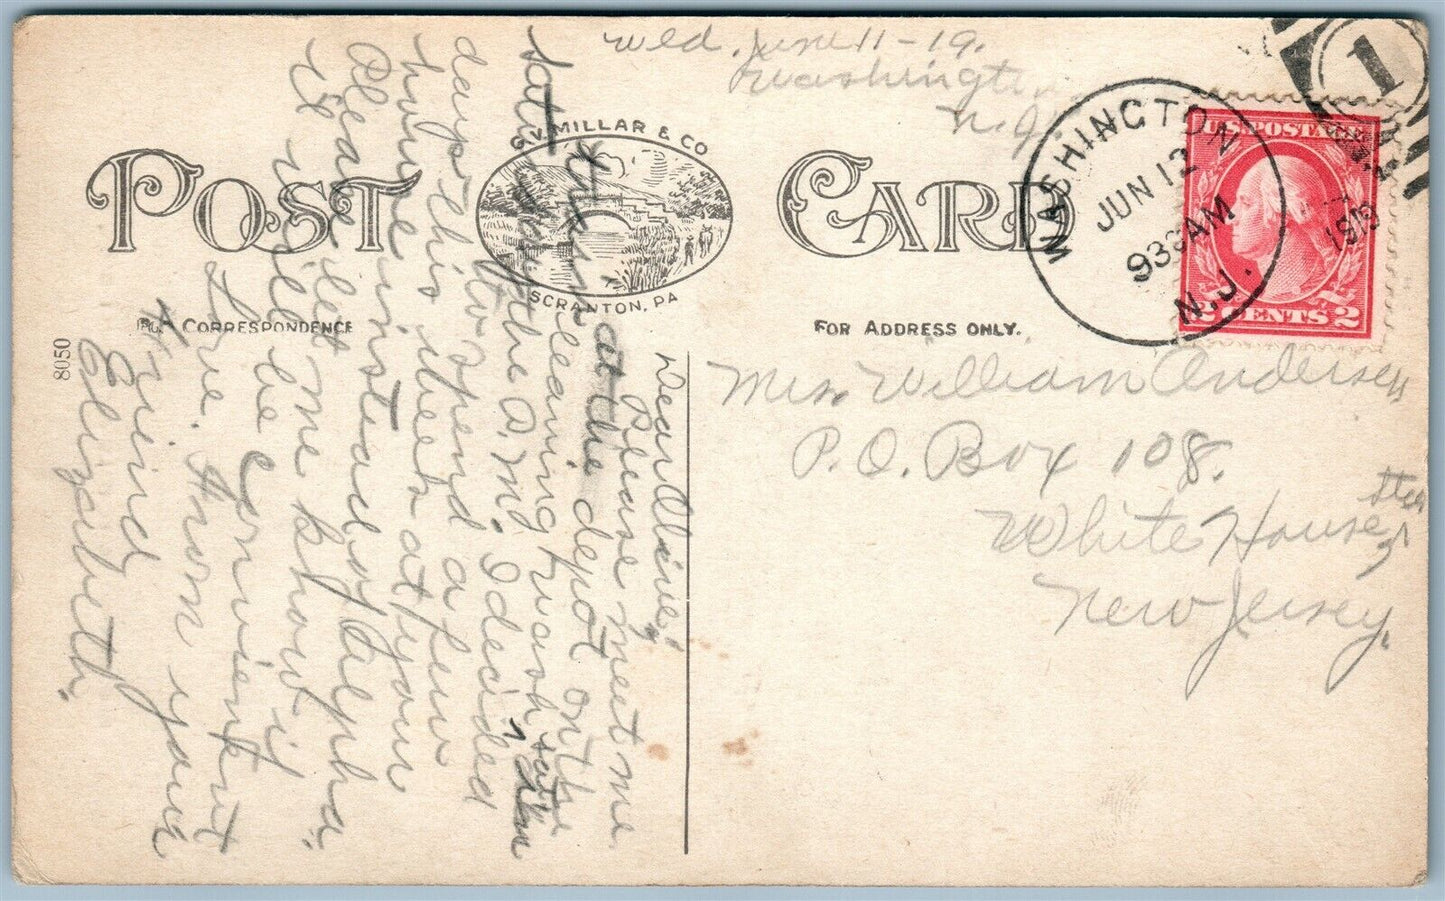 Wed. June 11-19.
Washington
N.J.
POST CARD
G. V. MILLAR & CO
SCRANTON, PA
FOR CORRESPONDENCE
FOR ADDRESS ONLY.
8050
WASHINGTON
JUN 12
930 AM
N.J.
1919
1
U.S. POSTAGE
2 CENTS 2
Mrs. William Andersen
P.O. Box 108.
White House Sta.,
New Jersey.
Dear Olive;
Please meet me
at the depot on the
leaving Wash
in the A.M. I decided
to spend a few
days this week at your
house instead of Alpha.
Please let me know if
it will be convenient
Love. From your
Friend
Elizabeth.
Sat.